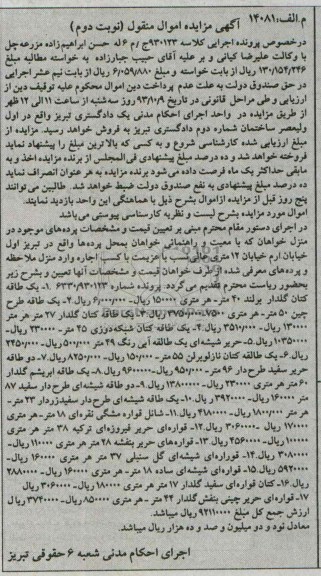 م.الف:۱۴۰۸۱ آگهی مزایده اموال منقول (نوبت دوم )
درخصوص پرونده اجرایی کلاسه ۹۳۰۱۲۳ج/م ۶ له حسن ابراهیم زاده مزرعه چل
با وکالت علیرضا کیانی و بر علیه آقای حبیب جبارزاده به خواسته مطالبه مبلغ
۱۳۰/۱۵۴/۲۴۶ ریال از بابت خواسته و مبلغ ۶/۰۵۹/۸۸۰ ریال از بابت نیم عشر اجرایی
در حق صندوق دولت به علت عدم پرداخت دین اموال محکوم علیه توقیف دین از
ارزیابی و طی مراحل قانونی در تاریخ ۹۳/۱۰/۹ روز سه شنبه از ساعت ۱۱ الی ۱۲ ظهر
از طریق مزایده در واحد اجرای احکام مدنی یک دادگستری تبریز واقع در اول
ولیعصر ساختمان شماره دوم دادگستری تبریز به فروش خواهد رسید. مزایده از
مبلغ ارزیابی شده کارشناسی شروع و به کسی که بالاترین مبلغ را پیشنهاد نماید
فروخته خواهد شد و ده درصد مبلغ پیشنهادی فی المجلس از برنده مزایده اخذ و به
مابقی حداکثر یک ماه فرصت داده می شود برنده مزایده به هر عنوان انصراف نماید
ده درصد مبلغ پیشنهادی به نفع صندوق دولت ضبط خواهد شد. طالبین می توانند
پنج روز قبل از مزایده ازاموال بشرح ذیل با هماهنگی این واحد بازدید نمایند.
اموال مورد مزایده بشرح لیست و نظریه کارشناسی پیوستی می باشد
در اجرای دستور مقام محترم مبنی بر تعیین قیمت و مشخصات پرده های موجود در
منزل خواهان که با معیت و راهنمائی خواهان بمحل پرده ها واقع در تبریز اول
خیابان ارم خیابان ۱۲ متری
و پرده های معرفی شده از طرف خواهان قیمت و مشخصات آنها تعیین و بشرح زیر
بحضور ریاست محترم تقدیم می گردد. پرونده شماره ۶۳۳۰/۹۳۰۱۲۳ ۱- یک طاقه
کتان گلدار برلند ۴۰ متر- هر متری ۱۵۰۰۰۰ ریال- ۶/۰۰۰/۰۰۰ ریال ۲- یک طاقه طرح
چین ۵۰ متر- هر متری ۷۵۰۰۰ ریال- ۳۷۵۰۰۰۰ ریال ۳- یک طاقه کتان گلدار ۲۷ متر هر متر
۱۳۰۰۰۰ ریال- ۳۵۱۰۰۰۰ ریال ۴- یک طاقه کتان شبکه دوزی ۴۵ متر- ۲۳۰۰۰۰ ریال-
۱۰۳۵۰۰۰۰ ریال ۵- حریر شیشه ای یک طاقه آبی رنگ ۴۹ متر ۵۰/۰۰۰ ریال- ۲۴۵۰/۰۰۰
ریال ۶- یک طاقه کتان نازلوبرلن ۵۵ متر- ۱۵۰/۰۰۰ ریال- ۸۲۵۰/۰۰۰ ریال ۷- دو طاقه
حریر سفید طرح دار ۹۶ متر- ۹۵۰/۰۰۰ ریال- ۹۶۰۰۰۰۰ ریال ۸- یک طاقه ابریشم گلدار
۶۰ متر هر متری ۲۳۰۰۰۰ ریال- ۱۳۸۰۰۰۰۰ ریال ۹- دو طاقه شیشه ای طرح دار سفید ۸۷
متر ۱۶۰۰۰۰ ریال- ۳۹۲۰۰۰۰ ریال ۱۰- یک طاقه شیشه ای طرح دار سفیدزردار ۲۳ متر-
هر متر ۱۸۰/۰۰۰ ریال- ۴۸۸۰۰۰۰ ریال ۱۱- شانل قواره مشگی نقره ای ۱۸ متر- هر متری
۱۷۰۰۰۰ ریال- ۳۰۶۰۰۰۰ ریال ۱۲- قواره ای حریر فیروزه ای ترکیه ۳۸ متر هر متری
۱۰۰۰۰۰ ریال- ۴۵۶۰۰۰۰ ریال ۱۳- قواره های حریر بنفشه ۲۸ متر هر متری ۱۱۰۰۰۰ ریال-
۳۰۸۰۰۰۰ ریال ۱۴- قوراه ای شیشه ای گل سنبلی ۳۷ متر هر متری ۱۶۰۰۰۰ ریال-
۵۹۲۰۰۰۰ ریال ۱۵- قواره ای شیشه ای ساده ۱۸ متر- هر متری ۱۶۰۰۰۰ ریال- ۲۸۸۰۰۰۰
ریال ۱۶- کتان قواره ای سفید گلدار ۱۷ متر هر متری ۱۸۰۰۰۰ ریال- ۳۰۶۰۰۰۰ ریال
۱۷- قواره ای حریر چینی بنفش گلدار ۴۴ متر- هر متری ۸۵۰۰۰۰ ریال- ۳۷۴۰۰۰۰ ریال
ارزش جمع کل مبلغ ۹۲۱۱۰۰۰۰ ریال میباشد.
معادل نود و دو میلیون و صد و ده هزار ریال میباشد.
اجرای احکام مدنی شعبه ۶ حقوقی تبریز